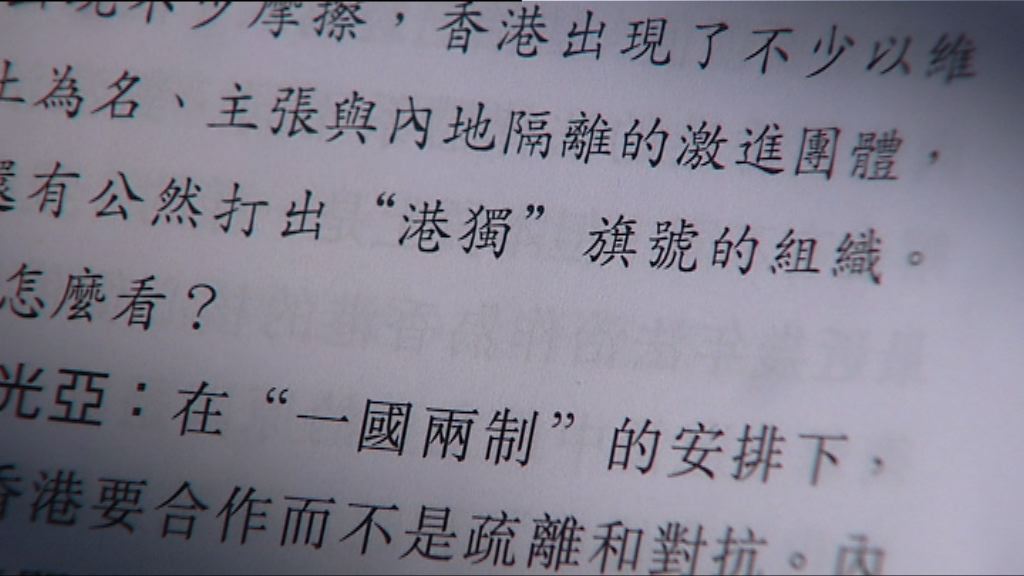 現不少摩擦，香港出現了不少以維
土為名、主張與內地隔離的激進團體，
還有公然打出“港獨”旗號的組織。
怎麼看？
光亞：在“一國兩制”的安排下，
香港要合作而不是疏離和對抗。內